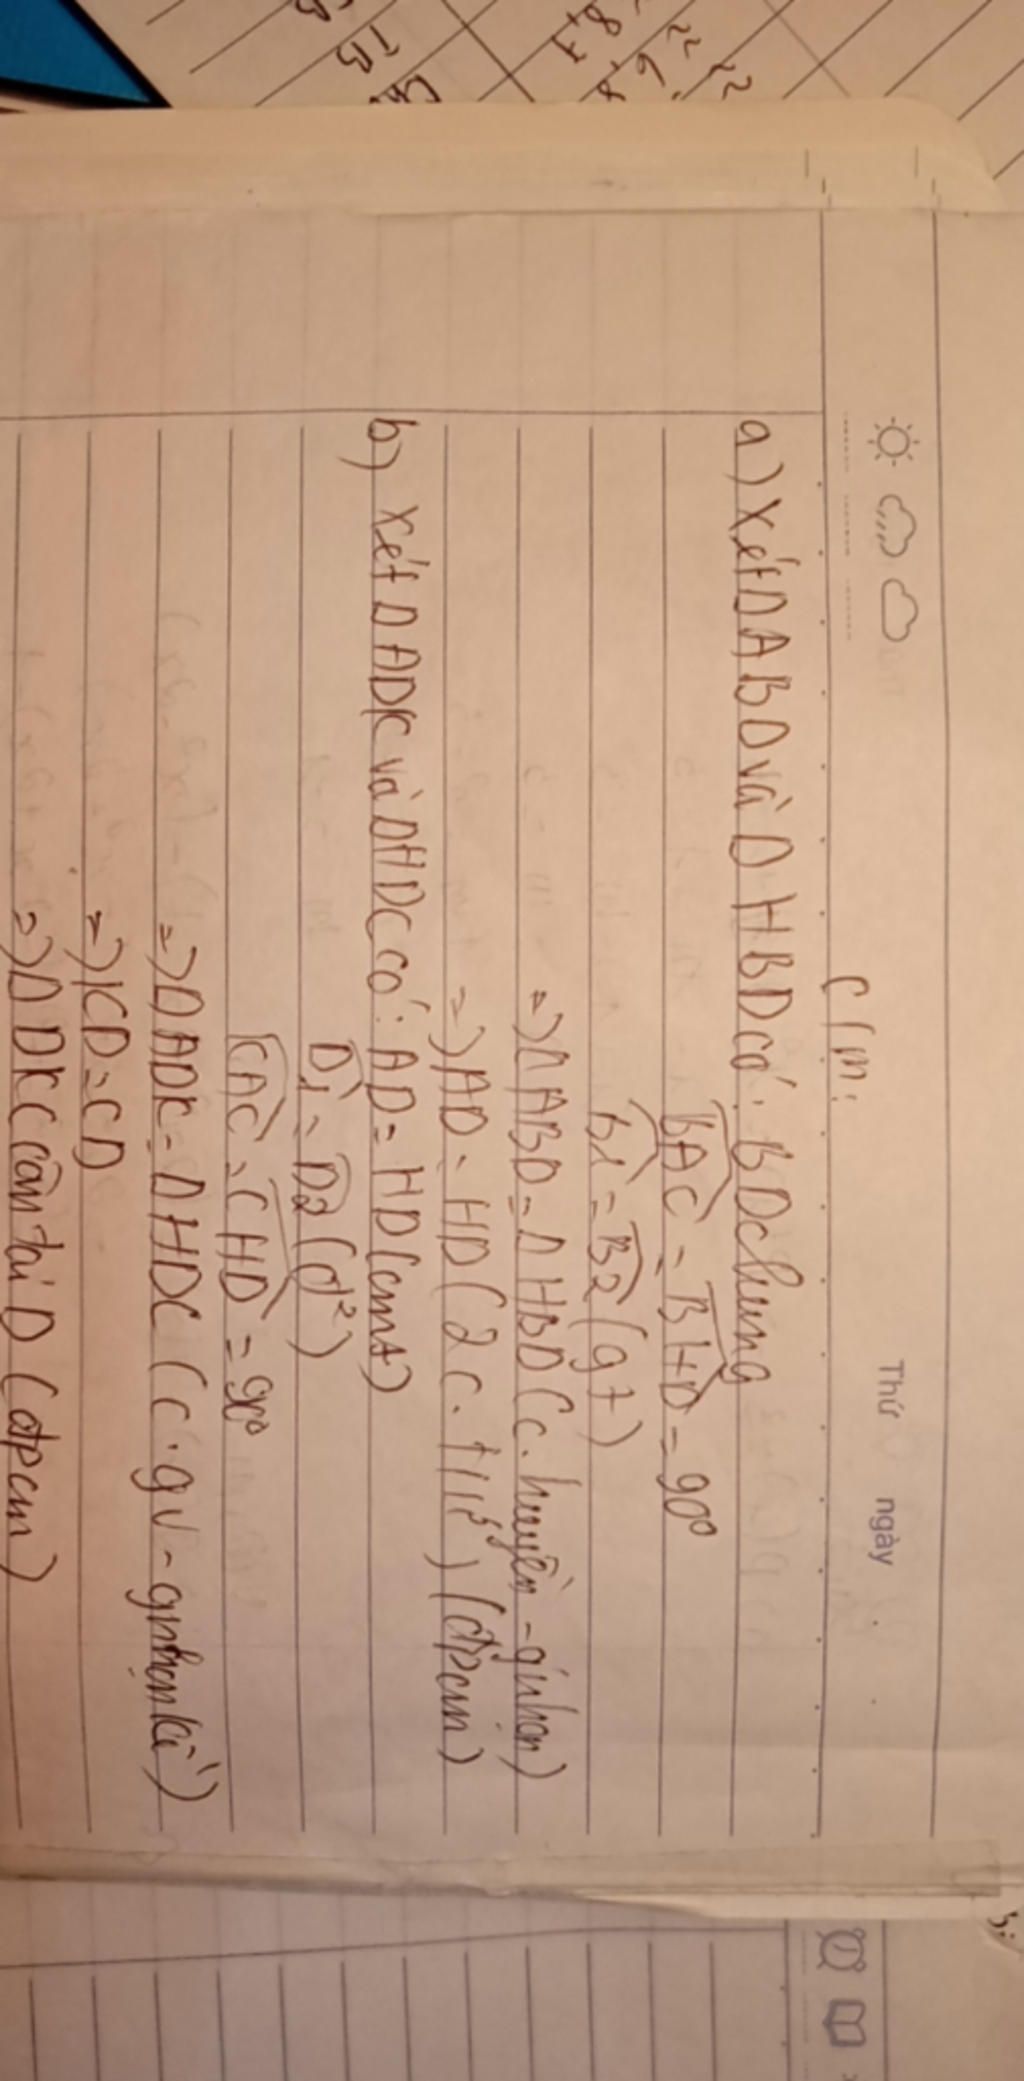 Thứ ngày
C/m:
a) Xét Δ ABD và Δ HBD có: BD chung
BAC = BHD = 90°
B1 = B2 (gt)
=) Δ ABD = Δ HBD (c.huyền - gnhọn)
=) AD = HD (2 c.tứ) (đpcm)
b) Xét Δ ADK và Δ HDC có: AD = HD (cmt)
D1 = D2 (đ²)
KAC = CHD = 90°
=) Δ ADK = Δ HDC (c.gv - gnhọn kề)
=) KD = CD
=) Δ DKC cân tại D (đpcm)